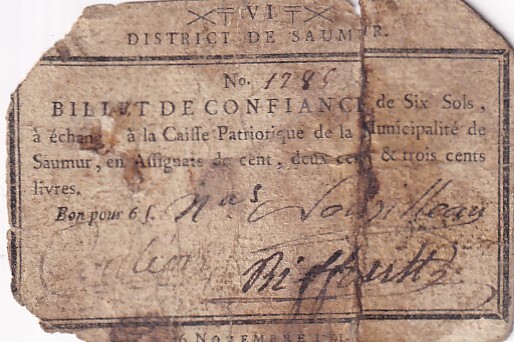 VI
DISTRICT DE SAUMUR.
No. 1785
BILLET DE CONFIANCE de Six Sols,
à échang à la Caisse Patriorique de la Municipalité de
Saumur, en Assignats de cent, deux cent & trois cents
livres.
Bon pour 6 s. nas
6 NOVEMBRE